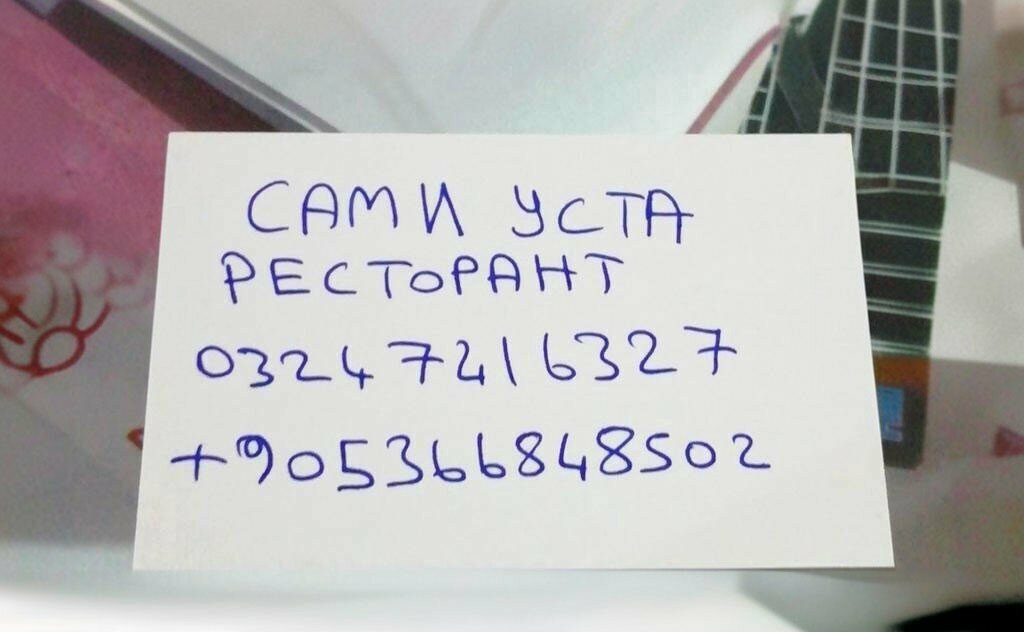 САМИ УСТА
РЕСТОРАНТ
03247216327
+905366848502